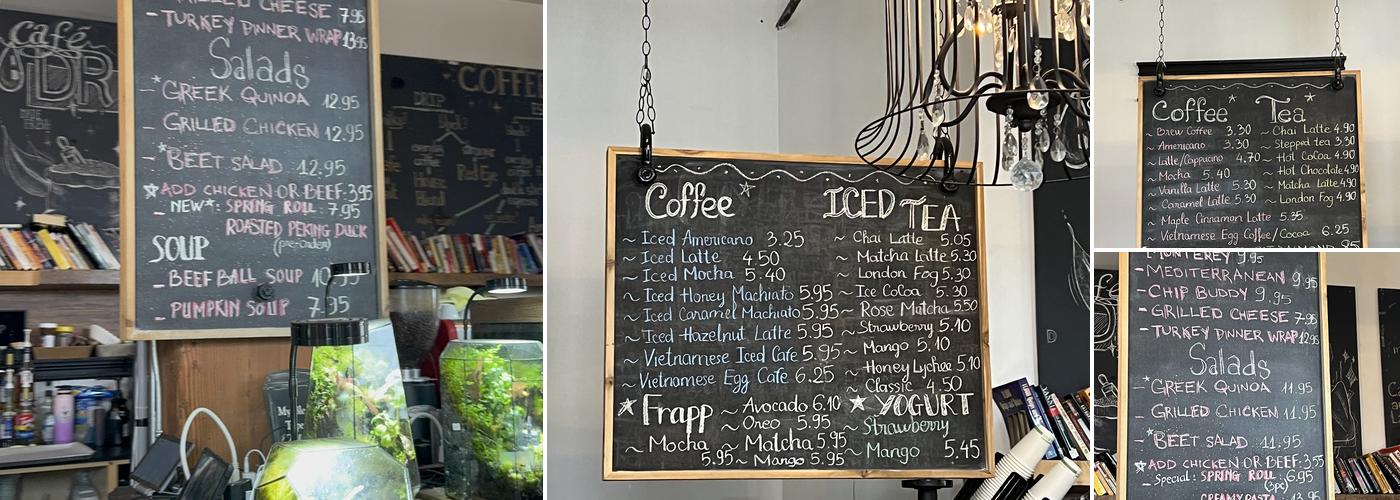 GRILLED CHEESE 7.95
- TURKEY DINNER WRAP 13.95
Salads
- *GREEK QUINOA 12.95
- GRILLED CHICKEN 12.95
- *BEET SALAD 12.95
☆ ADD CHICKEN OR BEEF: 3.95
- NEW*: SPRING ROLL 7.95
ROASTED PEKING DUCK
(pre-order)
SOUP
- BEEF BALL SOUP
- PUMPKIN SOUP 7.95
café
COFFEE
DRIP
House
Blend
Coffee☆ ICED TEA
~ Iced Americano 3.25
~ Iced Latte 4.50
~ Iced Mocha 5.40
~ Iced Honey Machiato 5.95
~ Iced Caramel Machiato 5.95
~ Iced Hazelnut Latte 5.95
~ Vietnamese Iced Cafe 5.95
~ Vietnamese Egg Cafe 6.25
~ Chai Latte 5.05
~ Matcha Latte 5.30
~ London Fog 5.30
~ Ice CoCoa 5.30
~ Rose Matcha 5.50
~ Strawberry 5.10
~ Mango 5.10
~ Honey Lychee 5.10
~ Classic 4.50
☆ Frapp
~ Avocado 6.10
~ Oreo 5.95
~ Mocha 5.95
~ Matcha 5.95
~ Mango 5.95
☆ YOGURT
~ Strawberry
~ Mango 5.45
Coffee* Tea*
~ Brew Coffee 3.30
~ Americano 3.30
~ Latte/Cappucino 4.70
~ Mocha 5.40
~ Vanilla Latte 5.30
~ Caramel Latte 5.30
~ Maple Cinnamon Latte 5.35
~ Vietnamese Egg Coffee/Cocoa 6.25
~ Chai Latte 4.90
~ Stepped tea 3.30
~ Hot CoCoa 4.90
~ Hot Chocolate 4.90
~ Matcha Latte 4.90
~ London Fog 4.90
MONTEREY 9.95
- MEDITERRANEAN 9.95
- CHIP BUDDY 9.95
- GRILLED CHEESE 7.95
- TURKEY DINNER WRAP 12.95
Salads
- *GREEK QUINOA 11.95
- GRILLED CHICKEN 11.95
- *BEET SALAD 11.95
☆ ADD CHICKEN OR BEEF: 3.55
- Special: SPRING ROLL 6.95
(3pc)
CREAMY PASTA